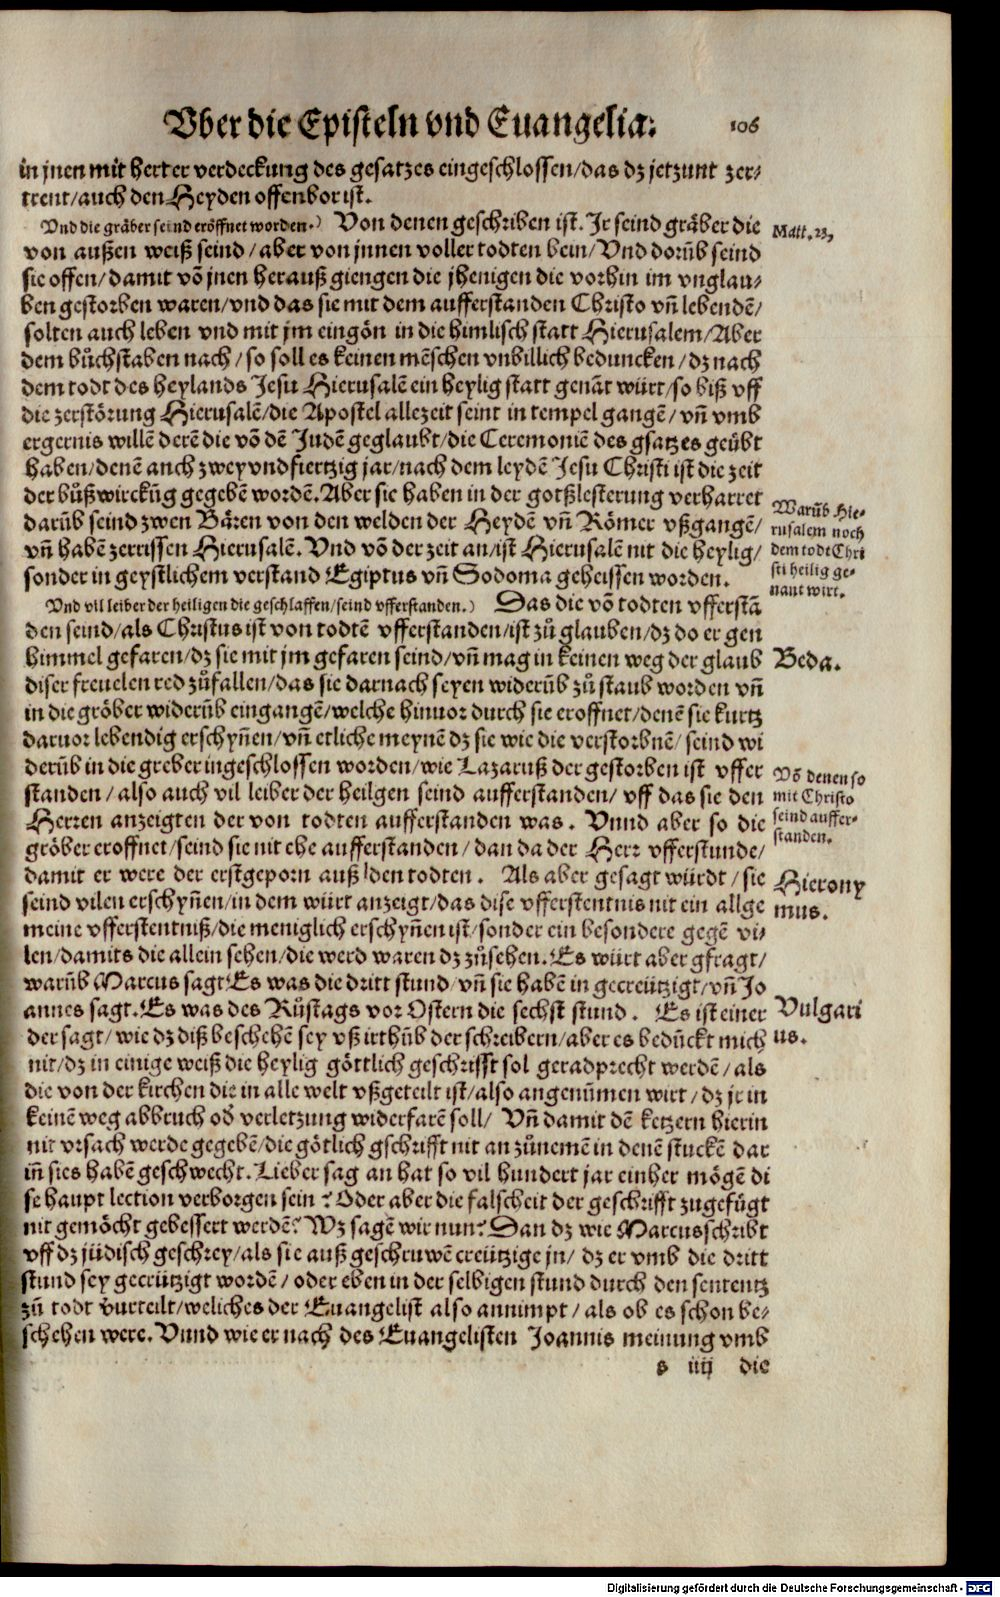 Vber die Episteln vnd Euangelia. 106
in jnen mit herter verdeckung des gesatzes eingeschlossen/das dz jetzunt zer-
trent/auch den Heyden offenbor ist.
Vnd die gräber seind eröffnet worden.) Von denen geschriben ist. Jr seind gräber die
Matt. 23,
von außen weiß seind/aber von jnnen voller todten bein/Vnd dorüb seind
sie offen/damit võ jnen herauß giengen die jhenigen die vorhin im vnglau-
ben gestorben waren/vnd das sie mit dem aufferstanden Christo vñ lebendẽ/
solten auch leben vnd mit jm eingõn in die himlisch statt Hierusalem/Aber
dem bůchstaben nach/so soll es keinen mẽschen vnbillich beduncken/dz nach
dem todt des heylands Jesu Hierusalẽ ein heylig statt genãt würt/so biß vff
die zerstörung Hierusalẽ/die Apostel allezeit seint in tempel gangẽ/vñ vmb
ergernis willẽ derẽ die võ dẽ Judẽ geglaubt/die Ceremoniẽ des gsatzes geübt
haben/denẽ auch zwey vnd fiertzig jar/nach dem leydẽ Jesu Christi ist die zeit
der bůßwirckũg gegebẽ wordẽ. Aber sie haben in der gotßlesterung verharret
darüb seind zwen Bären von den welden der Heydẽ vñ Römer vßgangẽ/
Warũb Hie-
rusalem noch
dem todt Chri
sti heilig ge-
nant wirt.
vñ habẽ zerrissen Hierusalẽ. Vnd võ der zeit an/ist Hierusalẽ nit die heylig/
sonder in geystlichem verstand Egiptus vñ Sodoma geheissen worden.
Vnd vil leiber der heiligen die geschlaffen/seind vfferstanden.) Das die võ todten vfferstã
den seind/als Christus ist von todtẽ vfferstanden/ist zů glauben/dz do er gen
himmel gefaren/dz sie mit jm gefaren seind/vñ mag in keinen weg der glaub
Beda.
diser freuelen red zůfallen/das sie darnach seyen widerũb zů staub worden vñ
in die gröber widerũb eingangẽ/welche hinuor durch sie eroffnet/denẽ sie kurtz
daruor lebendig erschyñen/vñ etliche meynẽ dz sie wie die verstorbnẽ/seind wi
derũb in die greber ingeschlossen worden/wie Lazaruß der gestorben ist vffer
Võ denen so
mit Christo
seind auffer-
standen.
standen/also auch vil leiber der heilgen seind aufferstanden/vff das sie den
Herren anzeigten der von todten aufferstanden was. Vnnd aber so die
gröber eroffnet/seind sie nit ehe aufferstanden/dan da der Herr vfferstunde/
damit er were der erstgeporn auß den todten. Als aber gesagt würdt/sie
Hierony
mus.
seind vilen erschyñen/in dem würt anzeigt/das dise vfferstentnis nit ein allge
meine vfferstentniß/die meniglich erschyñen ist/sonder ein besondere gegẽ vi-
len/damits die allein sehen/die werd waren dz zůsehen. Es würt aber gfragt/
warũb Marcus sagt Es was die dritt stund/vñ sie habẽ in gecreützigt/vñ Jo
annes sagt. Es was des Rüstags vor Ostern die sechst stund. Es ist einer
Vulgari
us.
der sagt/wie dz diß beschehẽ sey vß irthũb der schreibern/aber es bedückt mich
nit/dz in einige weiß die heylig göttlich geschrifft sol geradprecht werdẽ/als
die von der kirchen die in alle welt vßgeteilt ist/also angenũmen wirt/dz jr in
keinẽ weg abbruch od verletzung widerfarẽ soll/ Vñ damit dẽ ketzern hierin
nit vrsach werde gegebẽ/die götlich gschrifft nit an zůnemẽ in denẽ stuckẽ dar
iñ sies habẽ geschwecht. Lieber sag an hat so vil hundert jar einher mögẽ di
se haupt lection verborgen sein? Oder aber die falscheit der geschrifft zugefügt
nit gemöcht gebessert werdẽ? Wz sagẽ wir nun? Dan dz wie Marcus schribt
vff dz jüdisch geschrey/als sie auß geschruwẽ creützige jn/dz er vmb die dritt
stund sey gecrützigt wordẽ/oder eben in der selbigen stund durch den sententz
zů todt vurteilt/weliches der Euangelist also annimpt/als ob es schon be-
schehen were. Vnnd wie er nach des Euangelisten Joannis meinung vmb
s iiij die
Digitalisierung gefördert durch die Deutsche Forschungsgemeinschaft - DFG